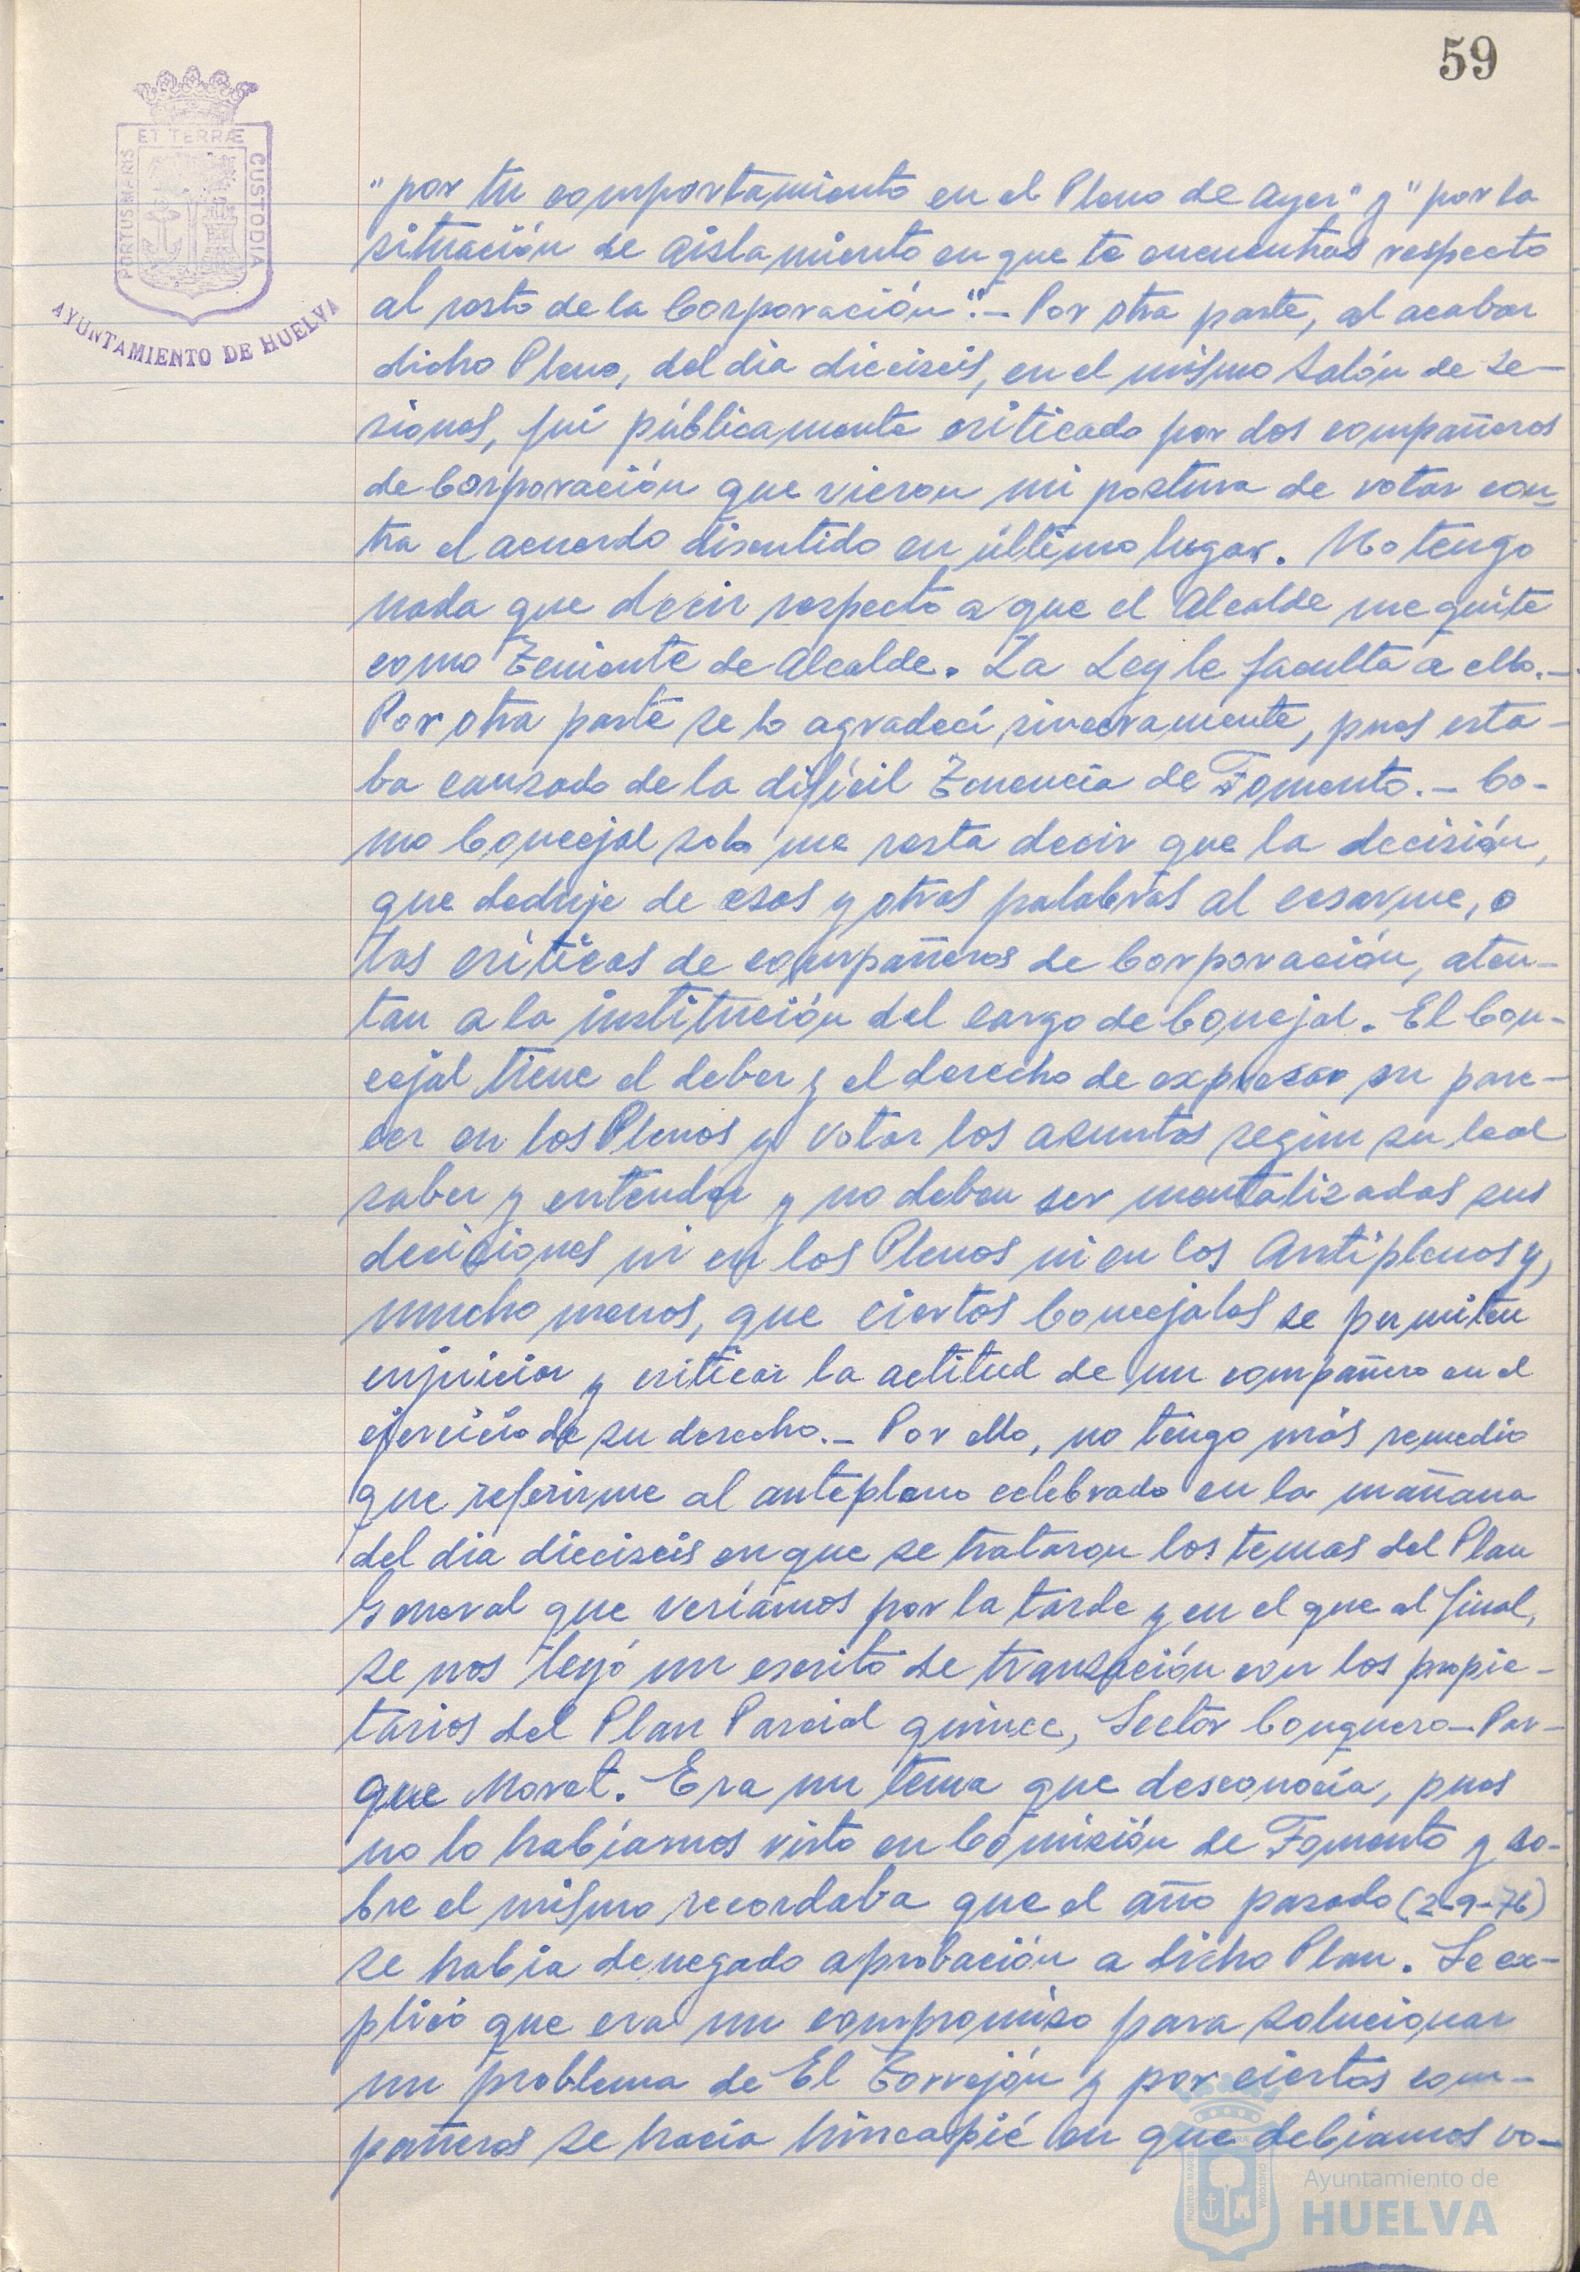 59
ET TERRÆ
PORTUS MARIS
CUSTODIA
AYUNTAMIENTO DE HUELVA
"por tu comportamiento en el Pleno de ayer" y "por la
situación de aislamiento en que te encuentras respecto
al resto de la Corporación".- Por otra parte, al acabar
dicho Pleno, del dia dieciseis, en el mismo Salón de Se-
siones, fuí públicamente criticado por dos compañeros
de Corporación que vieron mi postura de votar con-
tra el acuerdo discutido en último lugar. No tengo
nada que decir respecto a que el Alcalde me quite
como Teniente de Alcalde. La Ley le faculta a ello.-
Por otra parte se lo agradecí sinceramente, pues esta-
ba cansado de la difícil Tenencia de Fomento.- Co-
mo Concejal solo me resta decir que la decisión,
que deduje de esas y otras palabras al cesarme, o
las críticas de compañeros de Corporación, aten-
tan a la institución del cargo de Concejal. El Con-
cejal tiene el deber y el derecho de expresar su pare-
cer en los Plenos y votar los asuntos según su leal
saber y entender y no deben ser mentalizadas sus
decisiones ni en los Plenos ni en los Antiplenos y,
mucho menos, que ciertos Concejales se permiten
enjuiciar y criticar la actitud de un compañero en el
ejercicio de su derecho.- Por ello, no tengo más remedio
que referirme al antepleno celebrado en la mañana
del dia dieciseis en que se trataron los temas del Plan
General que veríamos por la tarde y en el que al final,
se nos leyó un escrito de transación con los propie-
tarios del Plan Parcial quince, Sector Conquero-Par-
que Moret. Era un tema que desconocía, pues
no lo habíamos visto en Comisión de Fomento y so-
bre el mismo recordaba que el año pasado (2-9-76)
se habia denegado aprobación a dicho Plan. Se ex-
plicó que era un compromiso para solucionar
un problema de El Torrejón y por ciertos com-
pañeros se hacía hincapié en que debíamos vo-
Ayuntamiento de
HUELVA